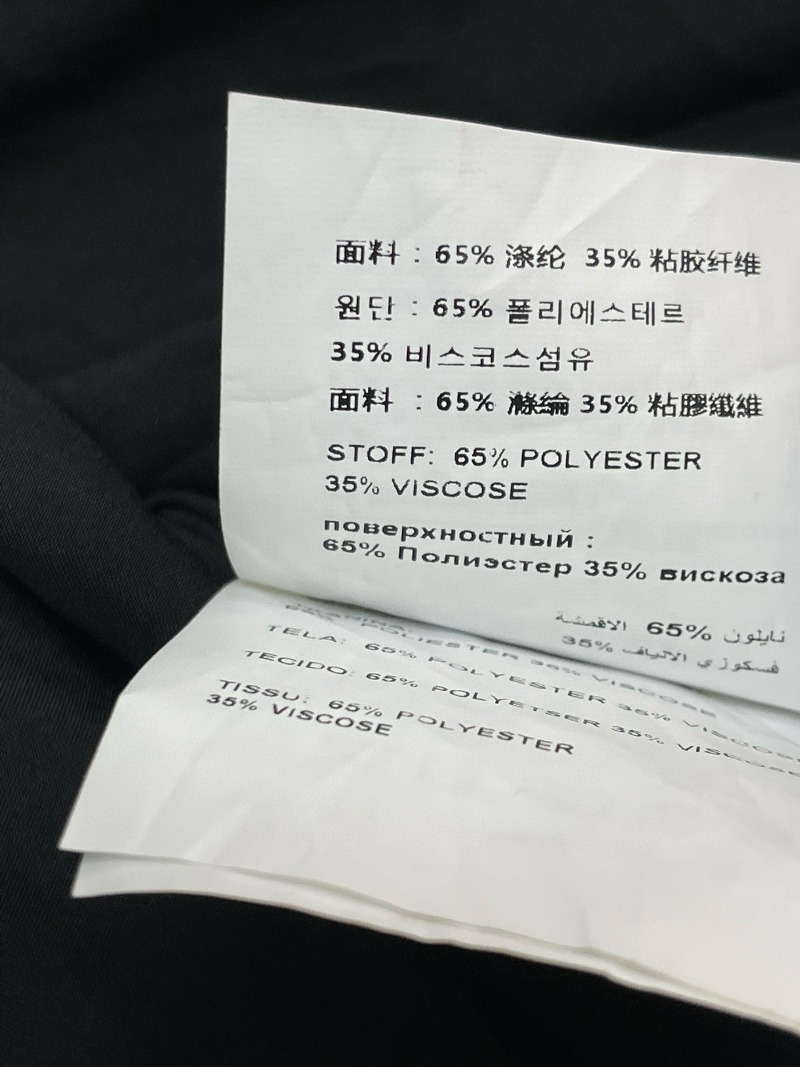 面料 : 65% 涤纶 35% 粘胶纤维
원단 : 65% 폴리에스테르
35% 비스코스섬유
面料 : 65% 滌綸 35% 粘膠纖維
STOFF: 65% POLYESTER
35% VISCOSE
поверхностный :
65% Полиэстер 35% вискоза
نايلون 65% الاقمشة
فسكوزي الالياف 35%
65% POLIESTER 35% VISCOSE
TELA: 65% POLYESTER 35% VISCOSE
TECIDO: 65% POLYETSER 35% VISCOSE
TISSU: 65% POLYESTER
35% VISCOSE